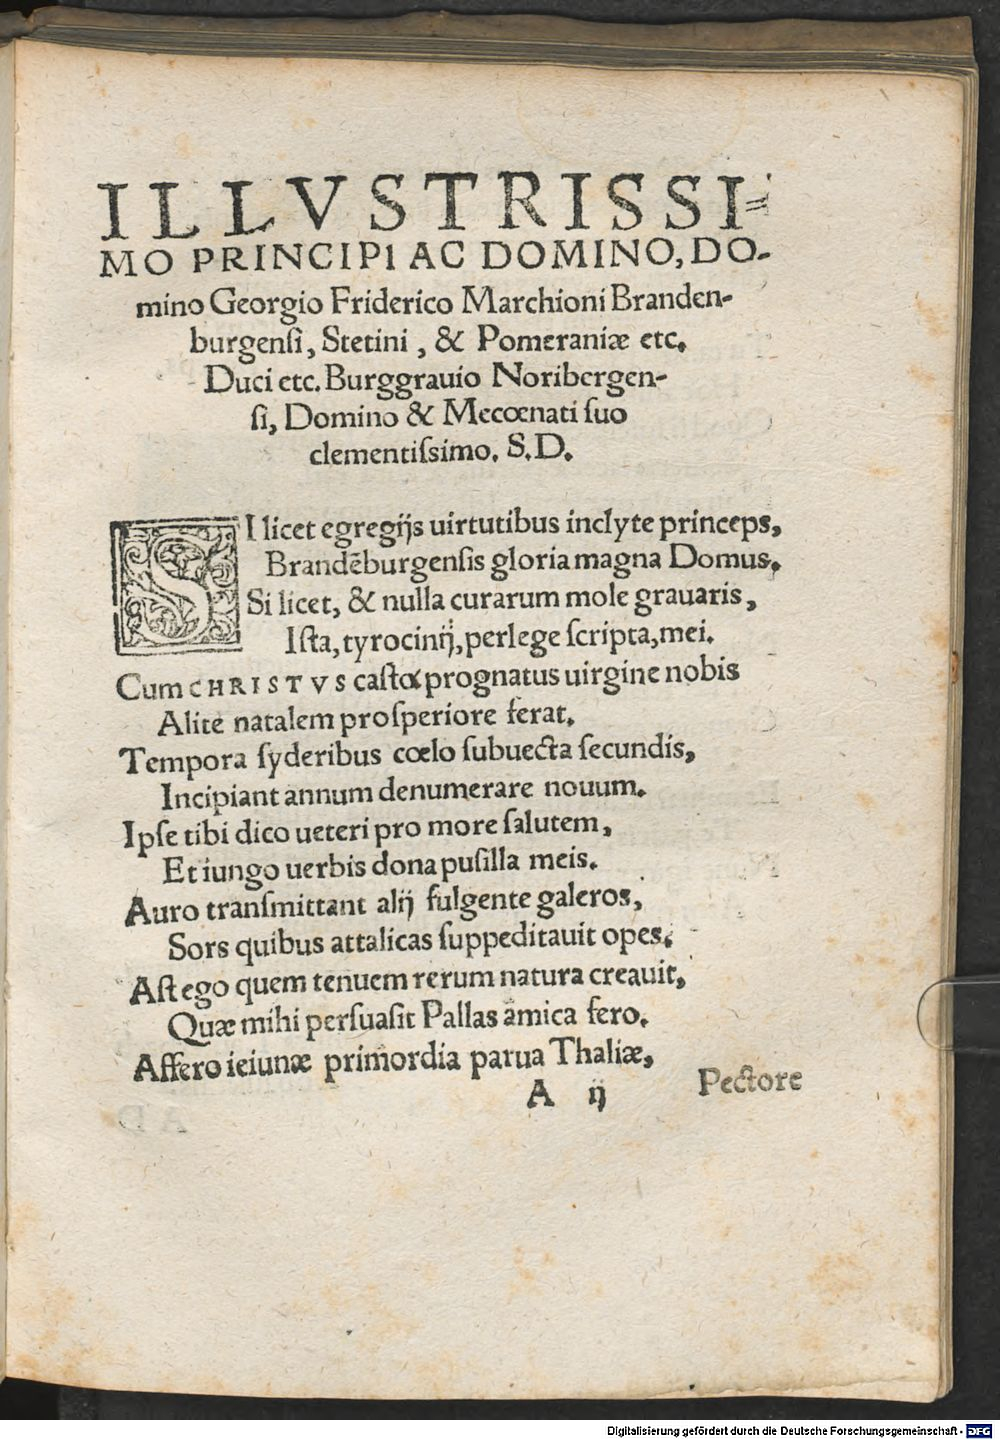 ILLVSTRISSI⸗
MO PRINCIPI AC DOMINO, DO-
mino Georgio Friderico Marchioni Branden-
burgenſi, Stetini, & Pomeraniæ etc.
Duci etc. Burggrauio Noribergen-
ſi, Domino & Mecœnati ſuo
clementiſsimo. S.D.
SI licet egregijs uirtutibus inclyte princeps,
Brandēburgenſis gloria magna Domus.
Si licet, & nulla curarum mole grauaris,
Iſta, tyrocinij, perlege ſcripta, mei.
Cum CHRISTVS caſta prognatus uirgine nobis
Alite natalem proſperiore ferat.
Tempora ſyderibus cœlo ſubuecta ſecundis,
Incipiant annum denumerare nouum.
Ipſe tibi dico ueteri pro more ſalutem,
Et iungo uerbis dona puſilla meis.
Auro tranſmittant alij fulgente galeros,
Sors quibus attalicas ſuppeditauit opes.
Aſt ego quem tenuem rerum natura creauit,
Quæ mihi perſuaſit Pallas amica fero.
Affero ieiunæ primordia parua Thaliæ,
A ij Pectore
Digitalisierung gefördert durch die Deutsche Forschungsgemeinschaft - DFG